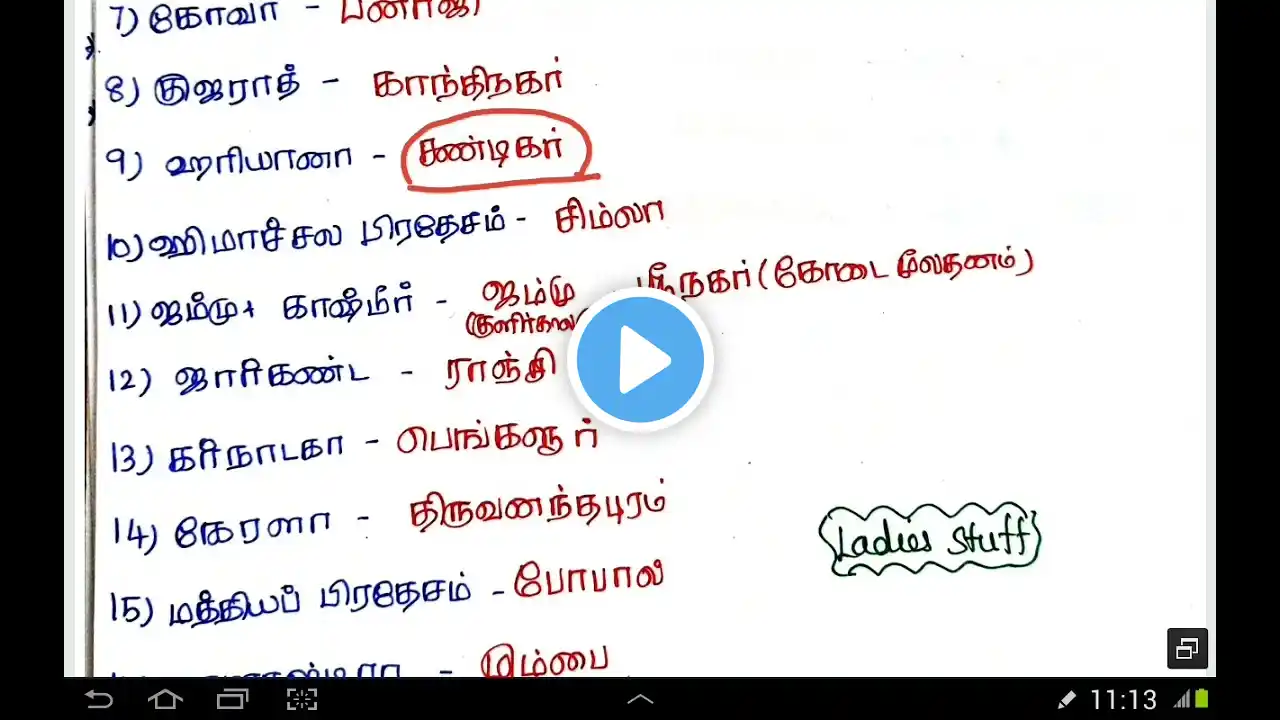 7) கோவா - பனாஜி
8) குஜராத் - காந்திநகர்
9) ஹரியானா - சண்டிகர்
10) ஹிமாச்சல பிரதேசம் - சிம்லா
11) ஜம்மு + காஷ்மீர் - ஜம்மு நகர் (கோடை
12) ஜார்கண்ட - ராஞ்சி
13) கர்நாடகா - பெங்களூர்
14) கேரளா - திருவனந்தபுரம்
15) மத்தியப் பிரதேசம் - போபால்
Ladies Stuff
- மும்பை
11:13